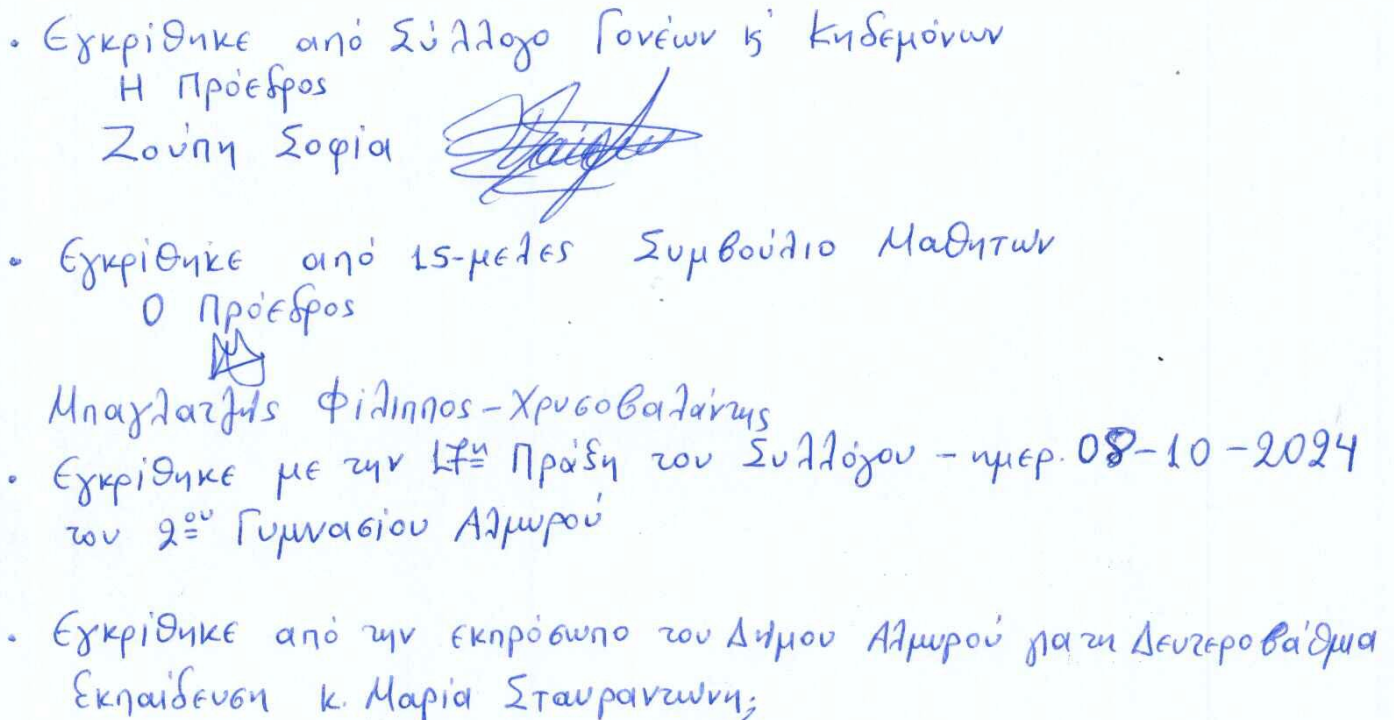 • Εγκρίθηκε από Σύλλογο Γονέων κ' Κηδεμόνων
Η Πρόεδρος
Ζούπη Σοφία
• Εγκρίθηκε από 15-μελες Συμβούλιο Μαθητών
Ο Πρόεδρος
Μπαγλατζής Φίλιππος-Χρυσοβαλάντης
• Εγκρίθηκε με την 17η Πράξη του Συλλόγου - ημερ. 08-10-2024
του 2ου Γυμνασίου Αλμυρού
• Εγκρίθηκε από την εκπρόσωπο του Δήμου Αλμυρού για τη Δευτεροβάθμια
Εκπαίδευση κ. Μαρία Σταυραντώνη;